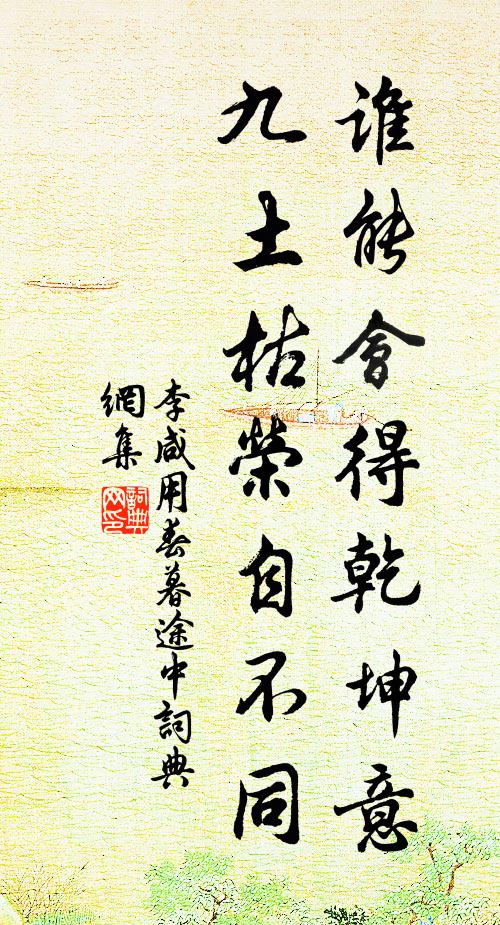 谁能會得乾坤意
九土枯榮自不同
李咸用春暮途中詞典
網集
詞典
网印